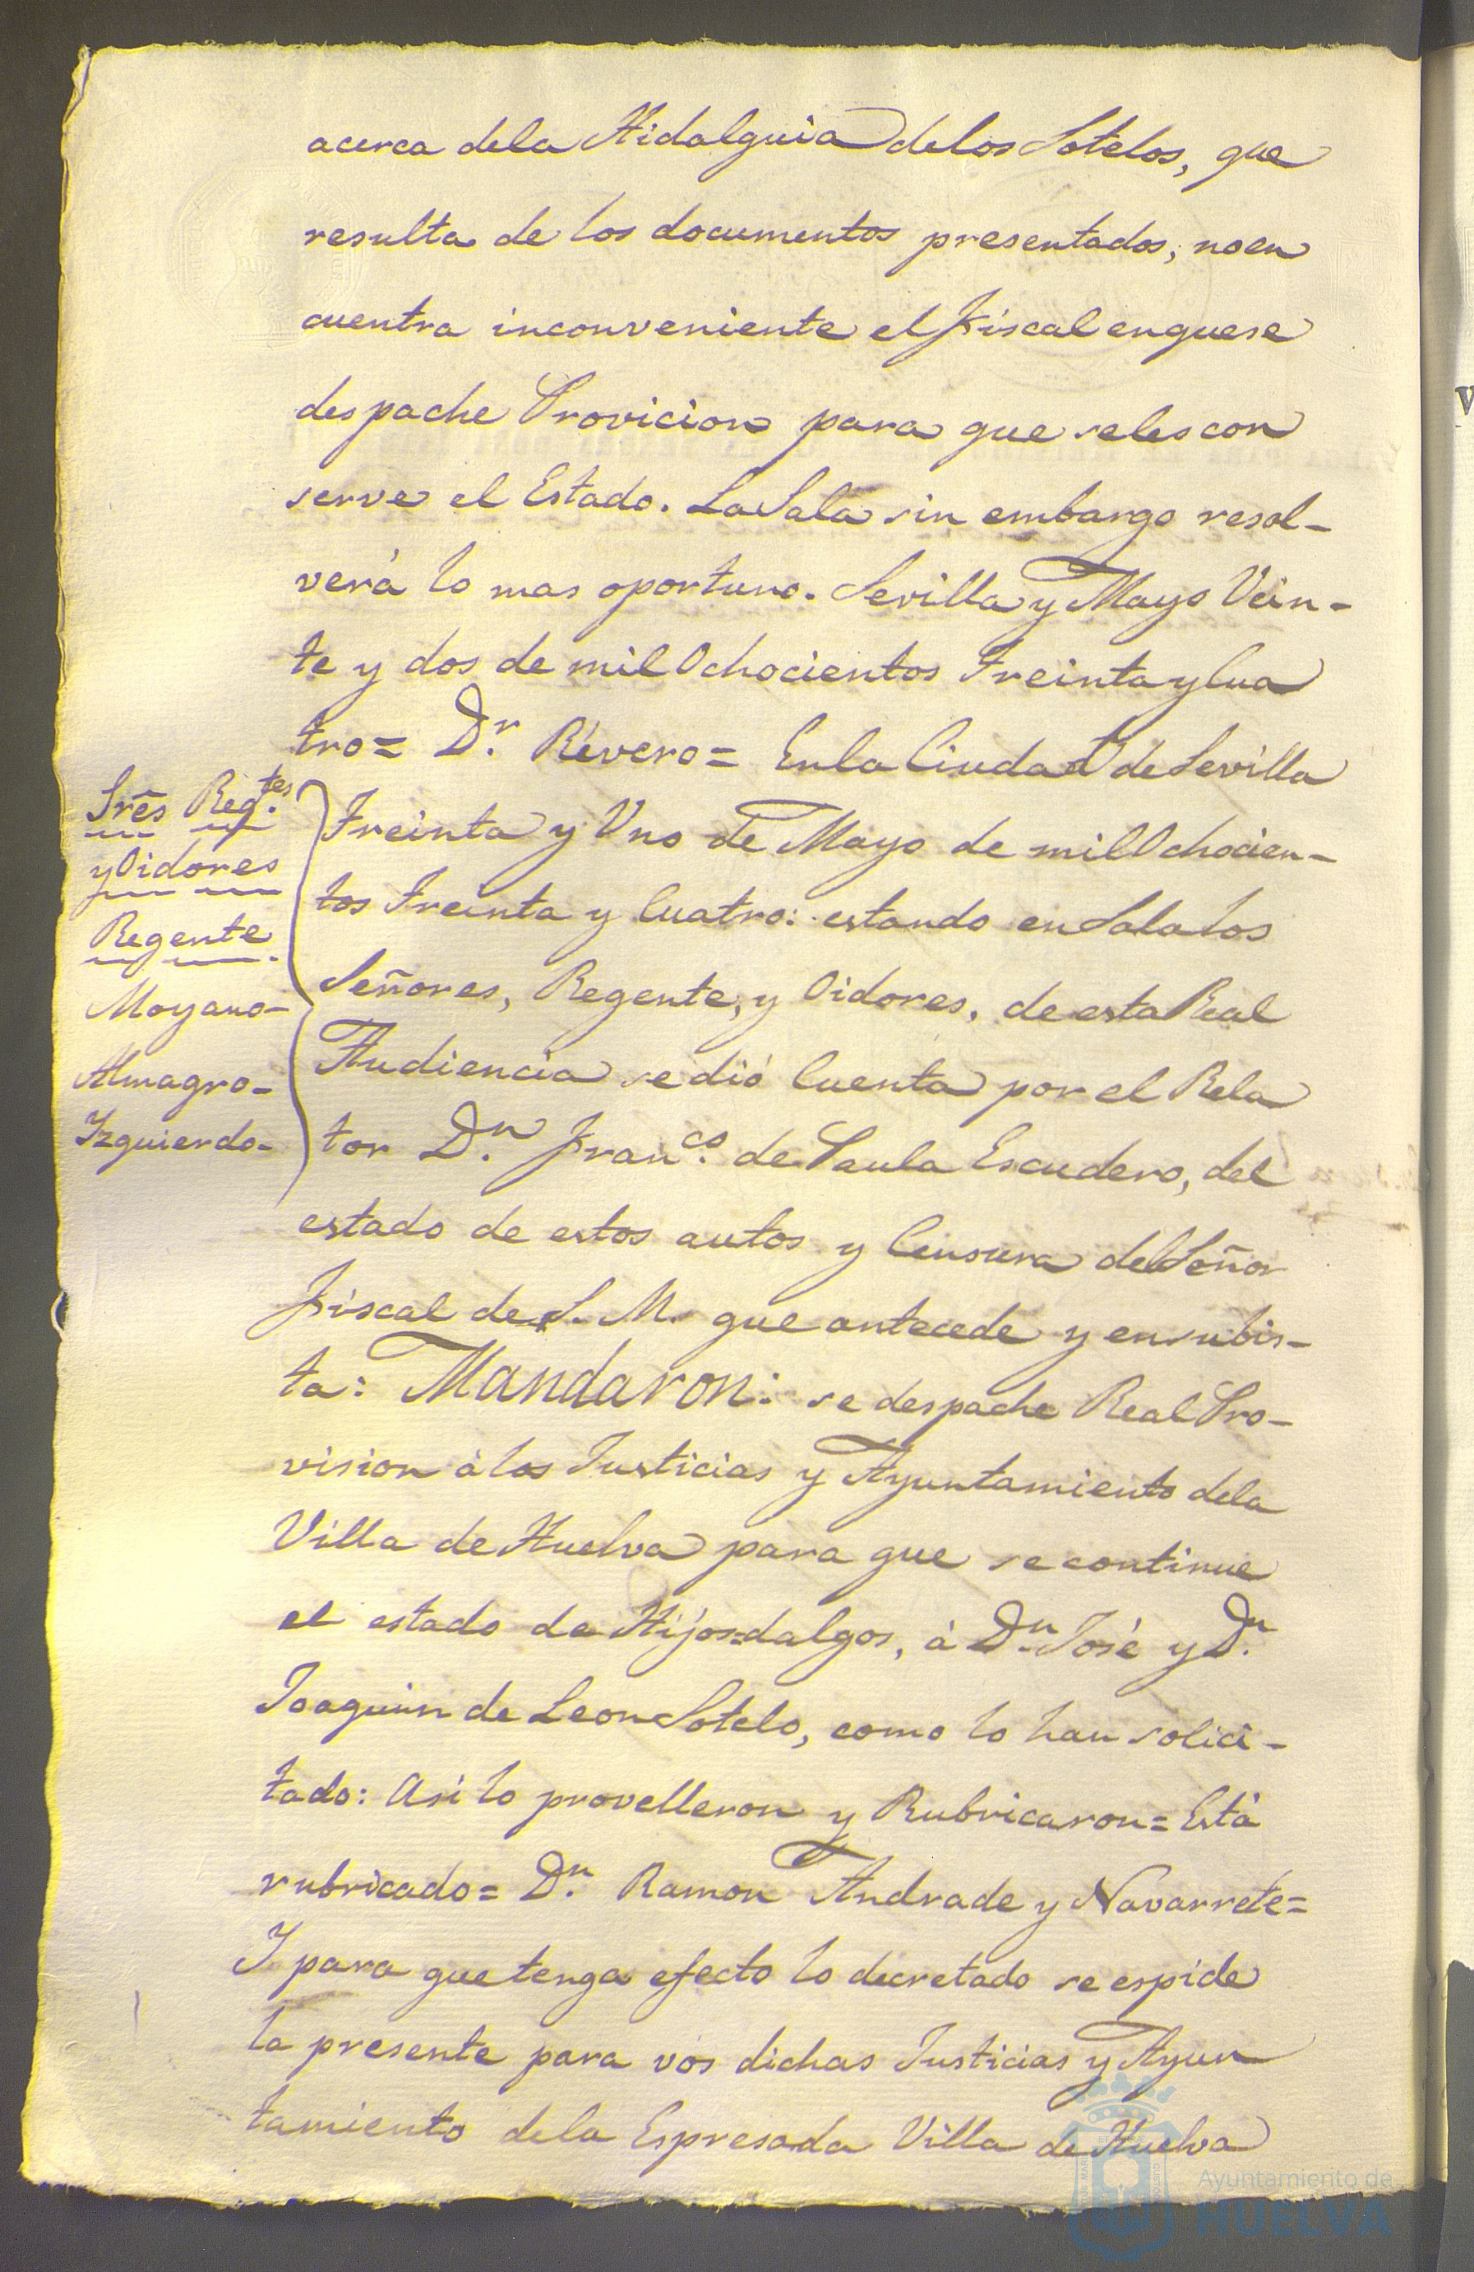 acerca dela Hidalguia delos Sotelos, que
resulta de los documentos presentados, noen
cuentra inconveniente el Fiscal enquese
despache Provicion para que selescon
serve el Estado. LaSala sin embargo resol-
verá lo mas oportuno. Sevilla y Mayo Vein-
te y dos de mil Ochocientos Treinta y Cua
tro= D.r Rivero= Enla Ciudad de Sevilla
Treinta y Uno de Mayo de mil Ochocien-
tos Treinta y Cuatro: estando en Sala los
Señores, Regente, y Oidores, de esta Real
Audiencia se dió Cuenta por el Rela
tor D.n Fran.co de Paula Escudero, del
estado de estos autos y Censura del Señor
Fiscal de S. M. que antecede y ensubis-
ta: Mandaron: se despache Real Pro-
vision á las Justicias y Ayuntamiento dela
Villa de Huelva para que se continue
el estado de Hijos=dalgos, á D.n José y D.n
Joaquin de Leon Sotelo, como lo han solici-
tado: Asi lo provelleron y Rubricaron= Está
rubricado= D.n Ramon Andrade y Navarrete=
Y para que tenga efecto lo decretado se espide
la presente para vós dichas Justicias y Ayun
tamiento dela Espresada Villa de Huelva
Srês Reg.tes
y Oidores
Regente
Moyano-
Almagro-
Izquierdo-
Ayuntamiento de
HUELVA